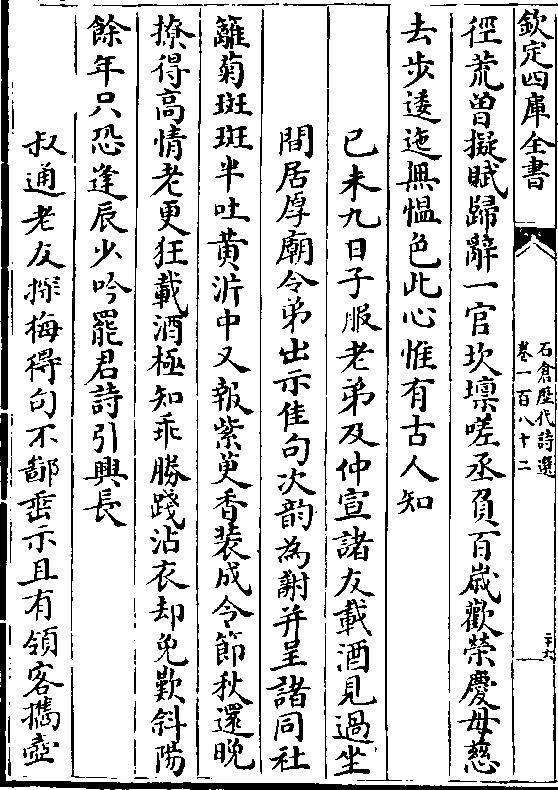 欽定四庫全書
石倉歴代詩選
卷一百八十二
二十六
徑荒曽擬賦歸辭一官坎壈嗟丞負百歲歡榮慶母慈
去步逶迤無愠色此心惟有古人知
己未九日子服老弟及仲宣諸友載酒見過坐
間居厚廟令弟出示佳句次韵為謝并呈諸同社
籬菊斑斑半吐黄沂中又報紫萸香裝成令節秋還晚
撩得高情老更狂載酒極知乖勝踐沾衣却免歎斜陽
餘年只恐逢辰少吟罷君詩引興長
叔通老友探梅得句不鄙垂示且有領客擕壺